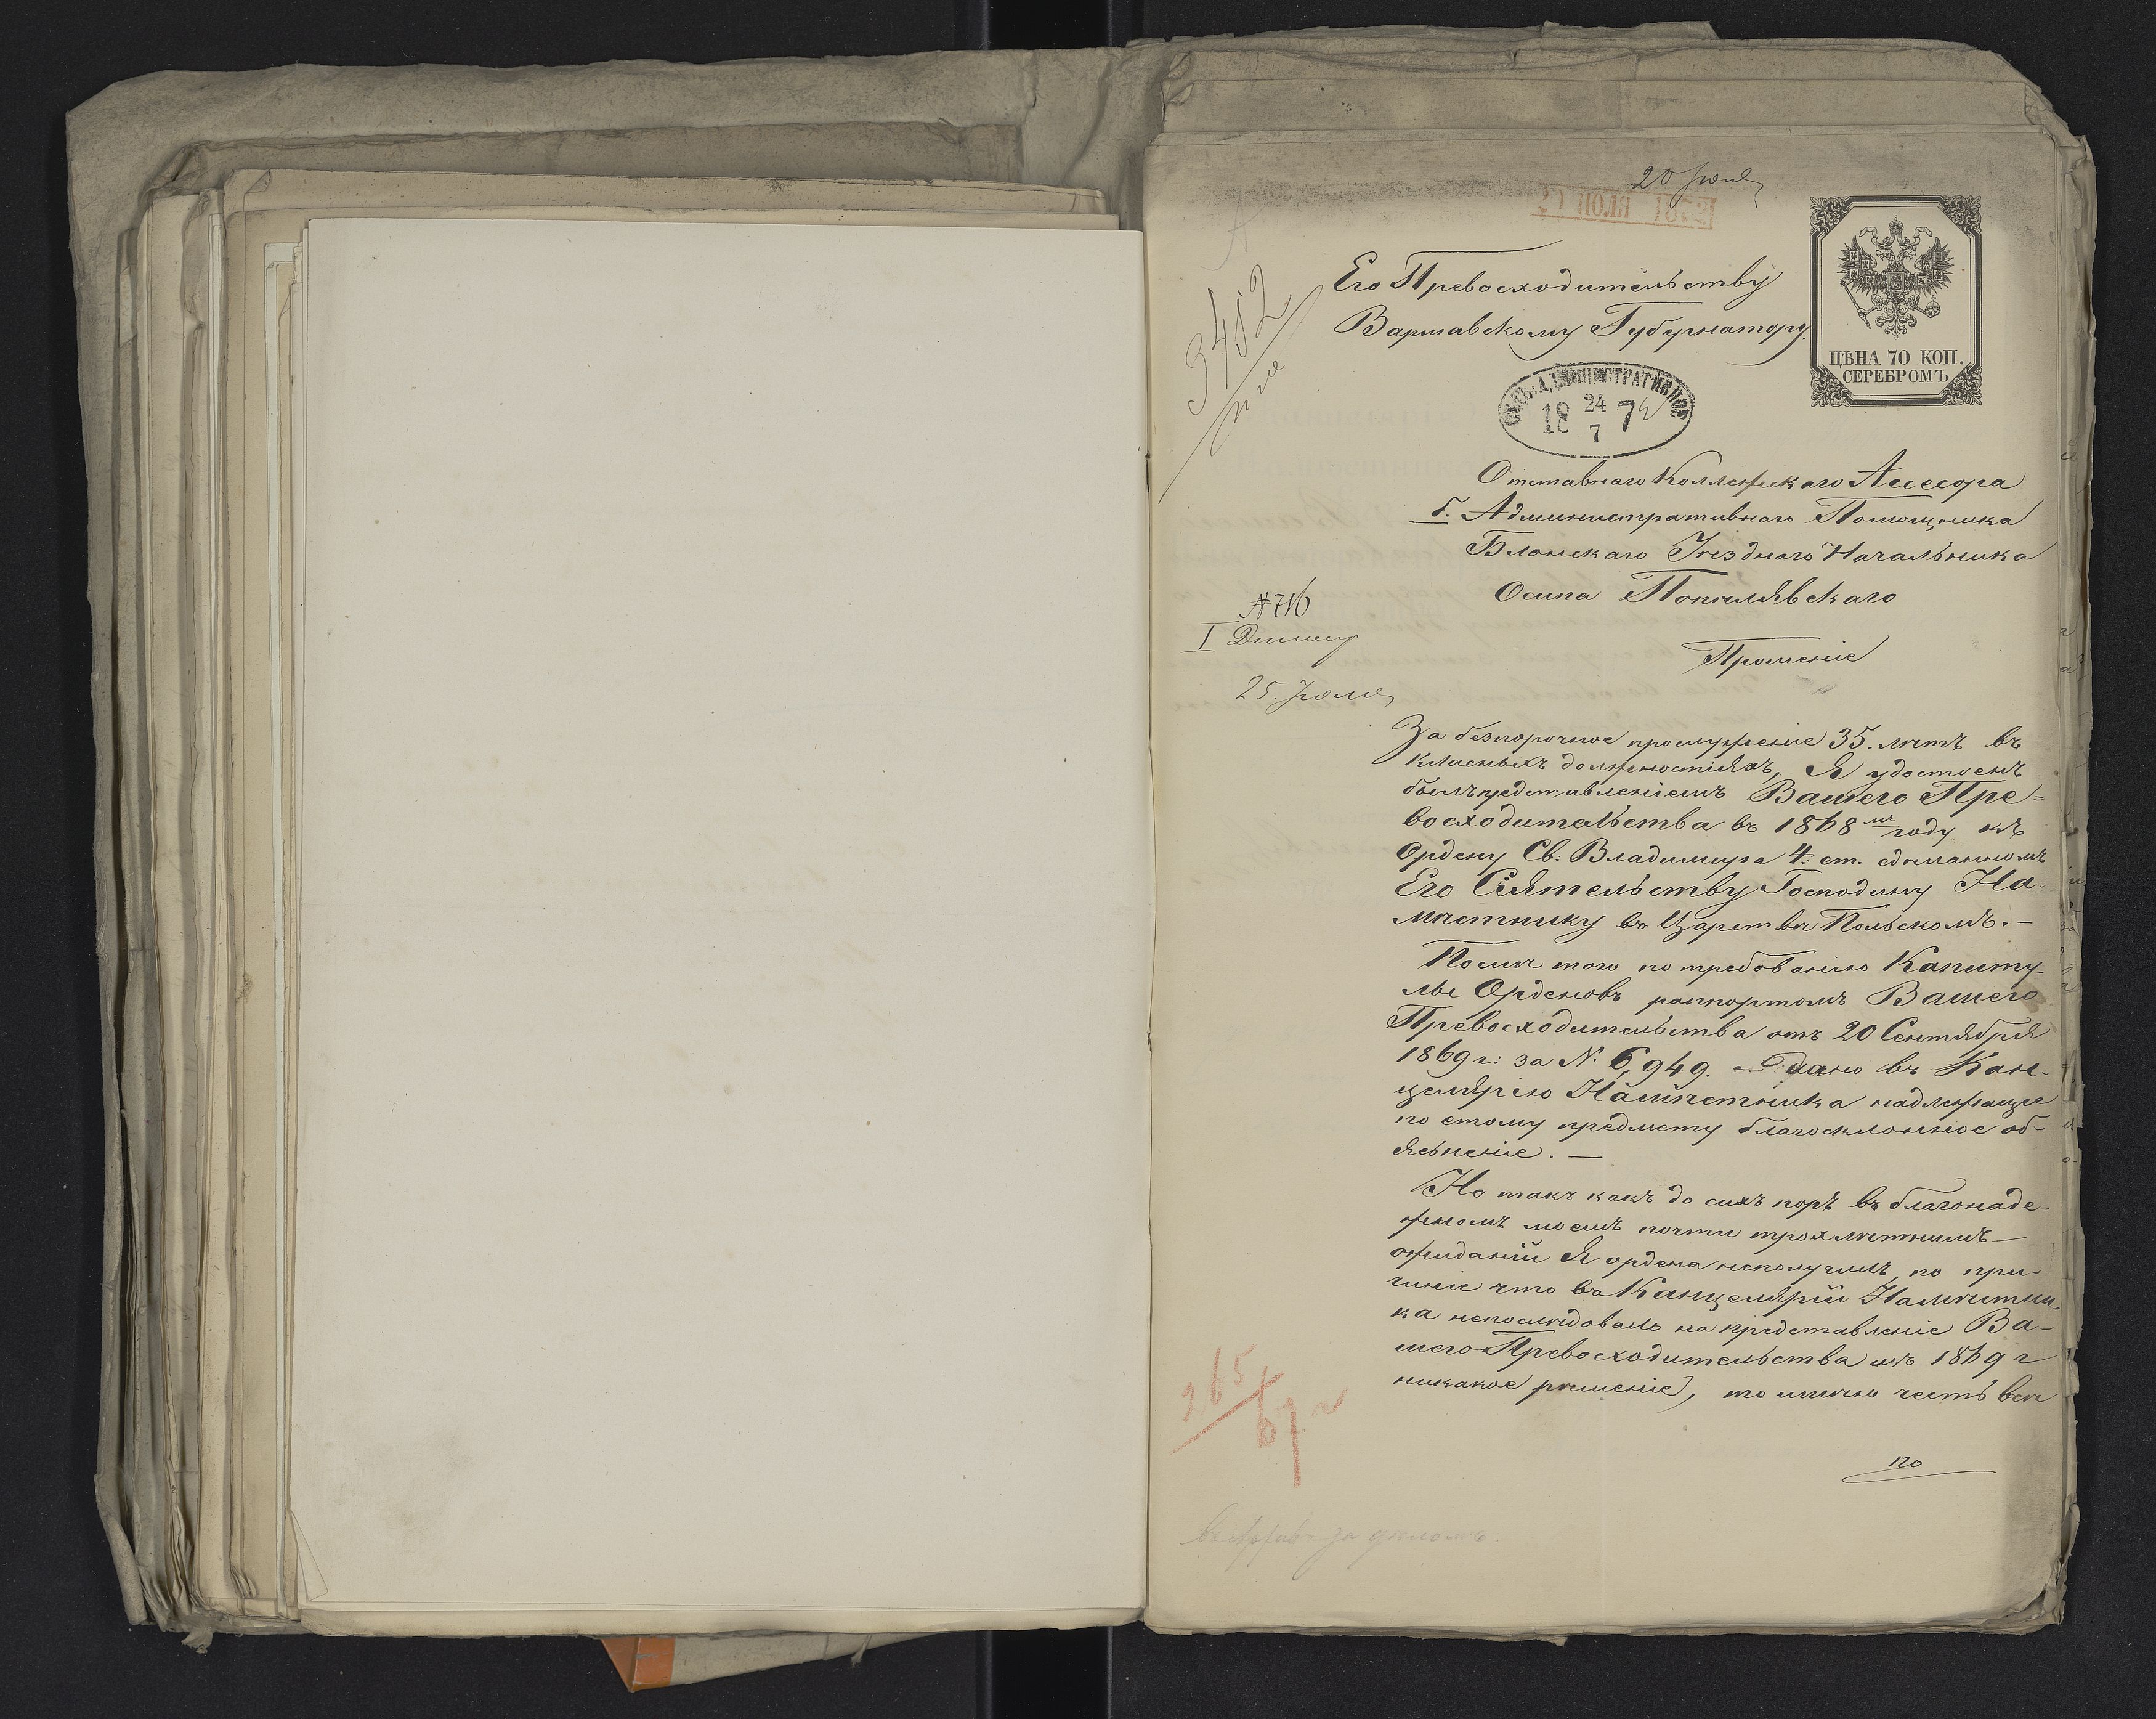 20 Іюля
Его Превосходительству
Варшавскому Губернатору.
ЦѢНА 70 КОП.
СЕРЕБРОМЪ
3452
АДМИНИСТРАТИВНОЕ
18 24/7 72
Отставнаго Коллежскаго Ассесора
б. Административнаго Помощника
Блонскаго Уѣзднаго Начальника
Осипа
№ 716
I
25. Іюля
Прошеніе
За безпорочное прослуженіе 35. лѣтъ въ
класныхъ должностіяхъ, Я удостоенъ
былъ представленіемъ Вашего Пре-
восходительства въ 1868 мъ году къ
Ордену Св: Владимира 4. ст. сдѣланномъ
Его Сіятельству Господину На-
мѣстнику въ Царствѣ Польскомъ. —
Послѣ того по требованію Капиту-
лы Орденовъ раппортомъ Вашего
Превосходительства отъ 20 Сентября
1869 г: за №. 6,949. дано въ Кан-
целярію Намѣстника надлежащее
по етому предмету благосклонное об-
ясьненіе. —
Но такъ какъ до сихъ поръ въ благонаде-
жномъ моемъ почти трохлѣтнимъ —
ожиданіи Я ордена неполучилъ, по при-
чиніе что въ Канцеляріи Намѣстни-
ка непослѣдовало на представленіе Ва-
шего Превосходительства изъ 1869 г
никакое рѣшеніе, то имѣю честь всѣ
по
265/67 г